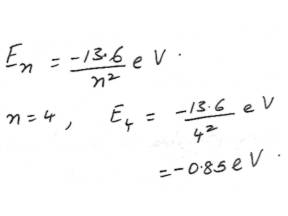 En = -13.6/n² eV.
n = 4, E4 = -13.6/4² eV
= -0.85 eV.